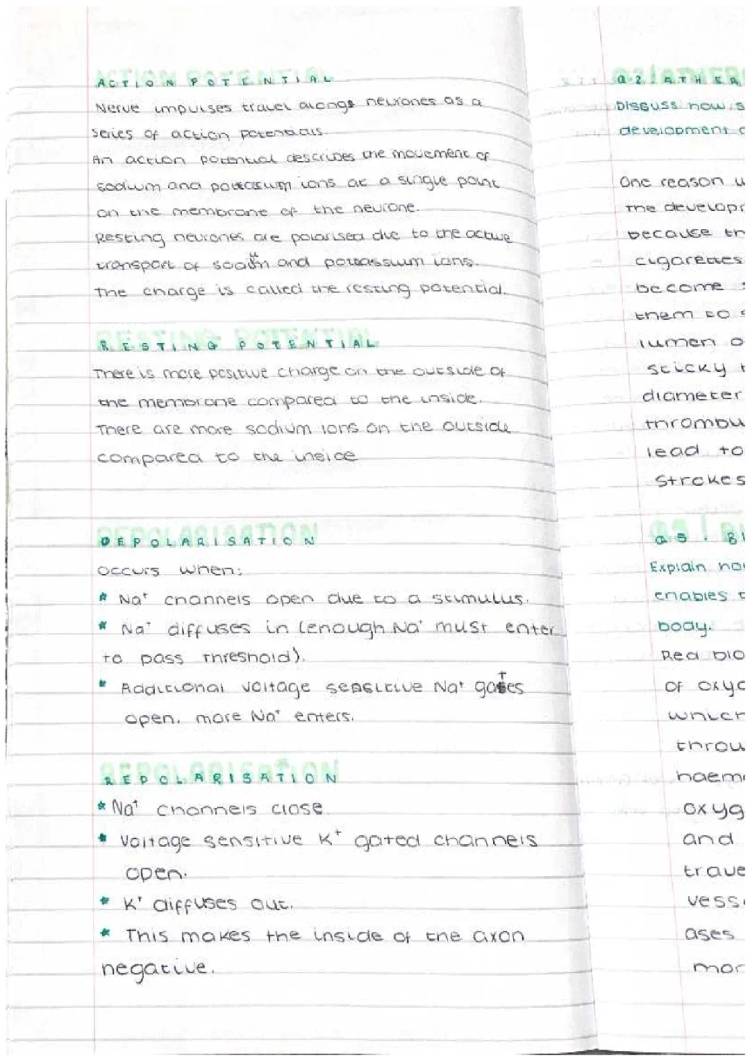 ACTION POTENTIAL
Nerve impulses travel along neurones as a
series of action potentials.
An action potential describes the movement of
sodium and potassium ions at a single point
on the membrane of the neurone.
Resting neurones are polarised due to the active
transport of sodium and potassium ions.
The charge is called the resting potential.
RESTING POTENTIAL
There is more positive charge on the outside of
the membrane compared to the inside.
There are more sodium ions on the outside
compared to the inside
DEPOLARISATION
occurs when:
* Na⁺ channels open due to a stimulus.
* Na⁺ diffuses in (enough Na⁺ must enter
to pass threshold).
* Additional voltage sensitive Na⁺ gates
open. more Na⁺ enters.
REPOLARISATION
* Na⁺ channels close
* Voltage sensitive K⁺ gated channels
open.
* K⁺ diffuses out.
* This makes the inside of the axon
negative.
Discuss how s
development
One reason
the develop
because th
cigarettes
become
them to
lumen o
sticky
diameter
thrombu
lead to
strokes
Explain how
enables
body.
Red blo
of oxyg
which
throu
haem
oxyg
and
trave
vess
ases
mor